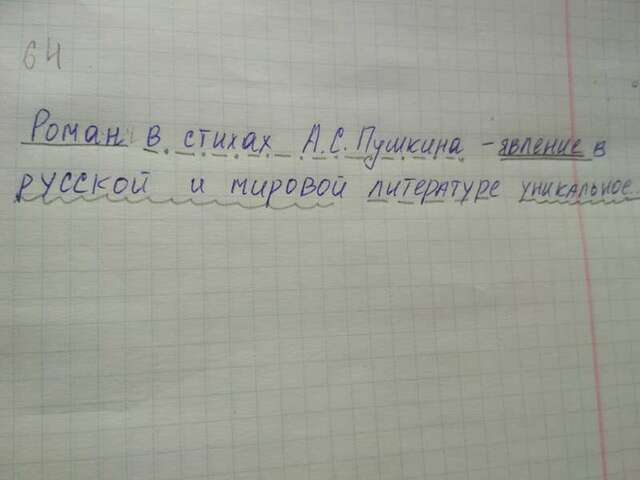 64
Роман в стихах А.С. Пушкина - явление в
русской и мировой литературе уникальное.